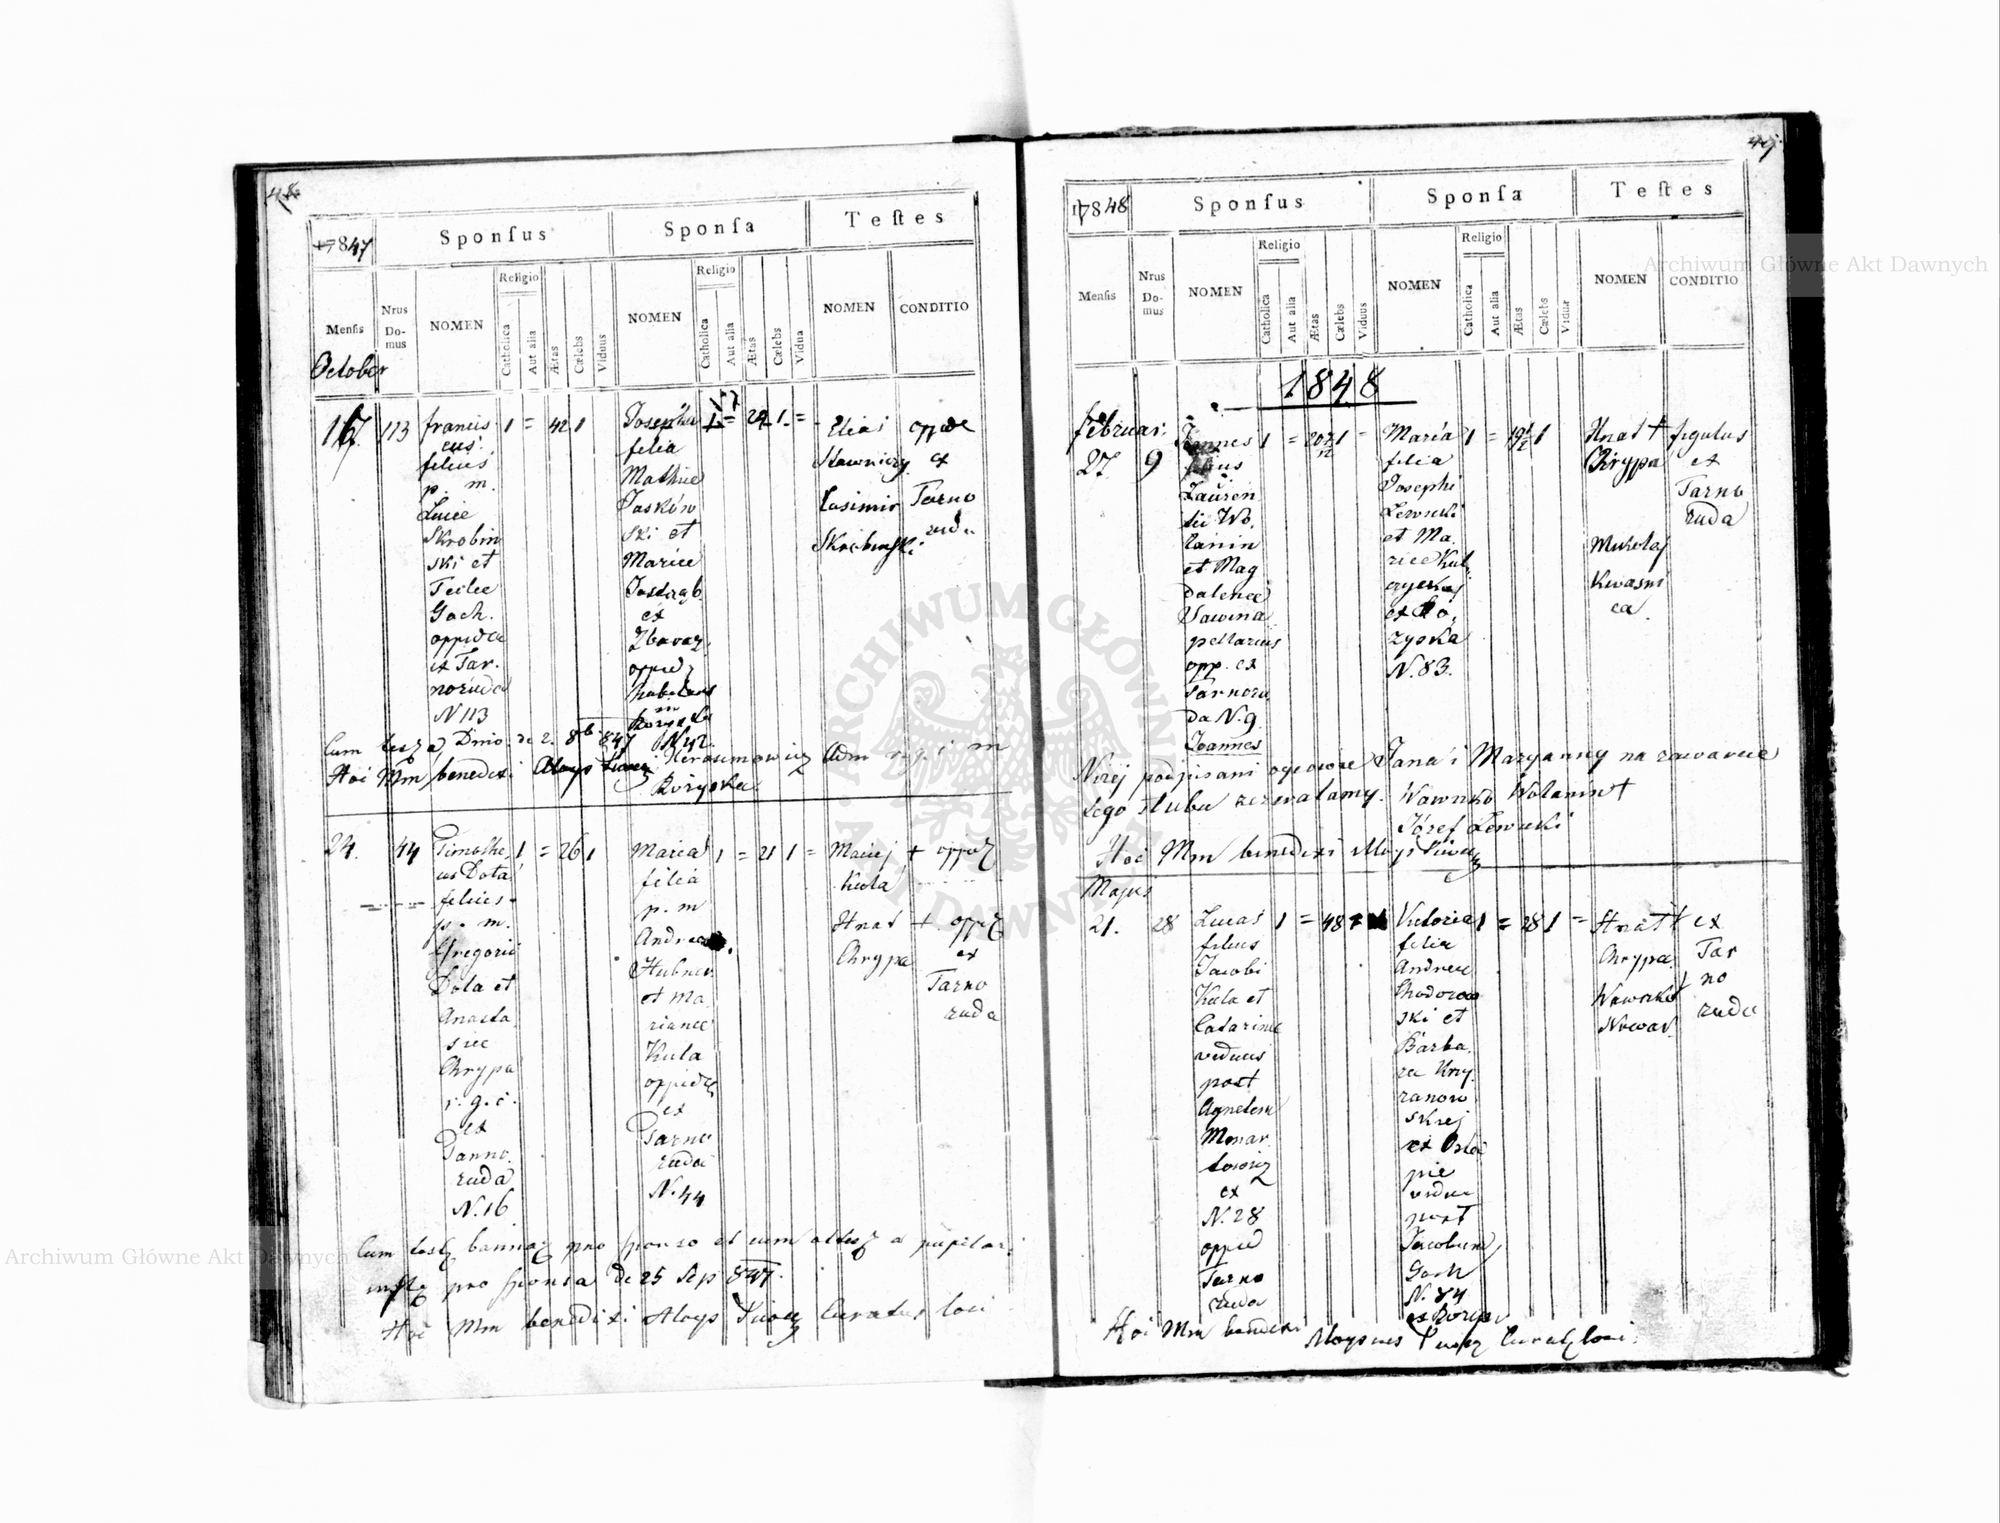 48.
1847
Sponſus
Sponſa
Teſtes
Menſis
Nrus
Do-
mus
NOMEN
Religio
Catholica
Aut alia
Ætas
Cælebs
Viduus
NOMEN
Religio
Catholica
Aut alia
Ætas
Cælebs
Vidua
NOMEN
CONDITIO
October
113
francis
cus
filius
p. m.
Lucae
Skrobin
ski et
Teclee
Gach.
oppidae
ex Tar.
noruda
N 113
1 = 42 1
Josepha
filia
Mathiae
Jasków
ski et
Mariae
Jastrąb
ex
Zbaraz.
oppid
habitans
in
Kozyska
Elias
Sławniczy
Casimir
Skrobinski
oppidae
ex
Tarno
ruda
Cum testą Dmio. de 2. 8b 847
Hoc Mm benedixi Aloys
Herasimowicz Adm
24.
44
Timothe,
us Dola
filius
p. m.
Gregorii
Dola et
Anasta
siae
Chrypa
r. g. c.
ex
Tarno.
ruda
N. 16
1 = 26 1
Maria
filia
p. m
Andreae
Hubner
et Ma
riannae
Kula
oppidae
ex
Tarno
ruda
N. 44
1 = 21 1 =
Maciej +
Kula
Hnat +
Chrypa
oppid
oppid
ex
Tarno
ruda
Cum testą bannaą pro sponso et cum altesą a pupilar.
pro sponsa de 25 Sep 847.
Hoc Mm benedixi Aloys Curatus loci
49.
1848
Sponſus
Sponſa
Teſtes
Menſis
Nrus
Do-
mus
NOMEN
Religio
Catholica
Aut alia
Ætas
Cælebs
Viduus
NOMEN
Religio
Catholica
Aut alia
Ætas
Cælebs
Viduæ
NOMEN
CONDITIO
1848
februar.
27
9
Joannes
filius
Lauren
tii Wo,
lanin
et Mag
dalenae
Sawina
pellarius
opp. ex
Tarnoru
da N. 9
Joannes
Maria
filia
Josephi
Lewicki
et Ma.
riae Kul
czyckiej
ex Ko,
zyska
N. 83.
Hnat +
Chrypa
Mikołaj
Kwasni
ca
figulus
ex
Tarno
ruda
Niżej podpisani ojcowie Jana i Maryanny na zawarcie
tego ślubu zezwalamy. Wawrzko Wolanin +
Józef Lewicki
Hoc Mm benedixi Aloys
Majus
21.
28
Lucas
filius
Jacobi
Kula et
Catarinae
viduus
post
Agnetem
Monar
towicz
ex
N. 28
oppid
Tarno
ruda
1 = 48
Victoria
filia
Andreae
Chodorow
ski et
Barba.
rae Krzy.
zanow
skiej
ex Osta
pie
vidua
post
Jacobum
Gach
N. 84
1 = 28 1 =
Hnat +
Chrypa
Wawrzko
Nowak
ex
Tar
no
ruda
Hoc Mm benedixi
Aloysius Curatą loci.
ARCHIWUM GŁÓWNE AKT DAWNYCH
Archiwum Główne Akt Dawnych
Archiwum Główne Akt Dawnych